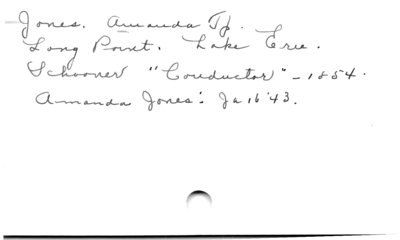 Jones. Amanda Tp.
Long Point. Lake Erie.
Schooner "Conductor" - 1854.
Amanda Jones: Ja 16 '43.